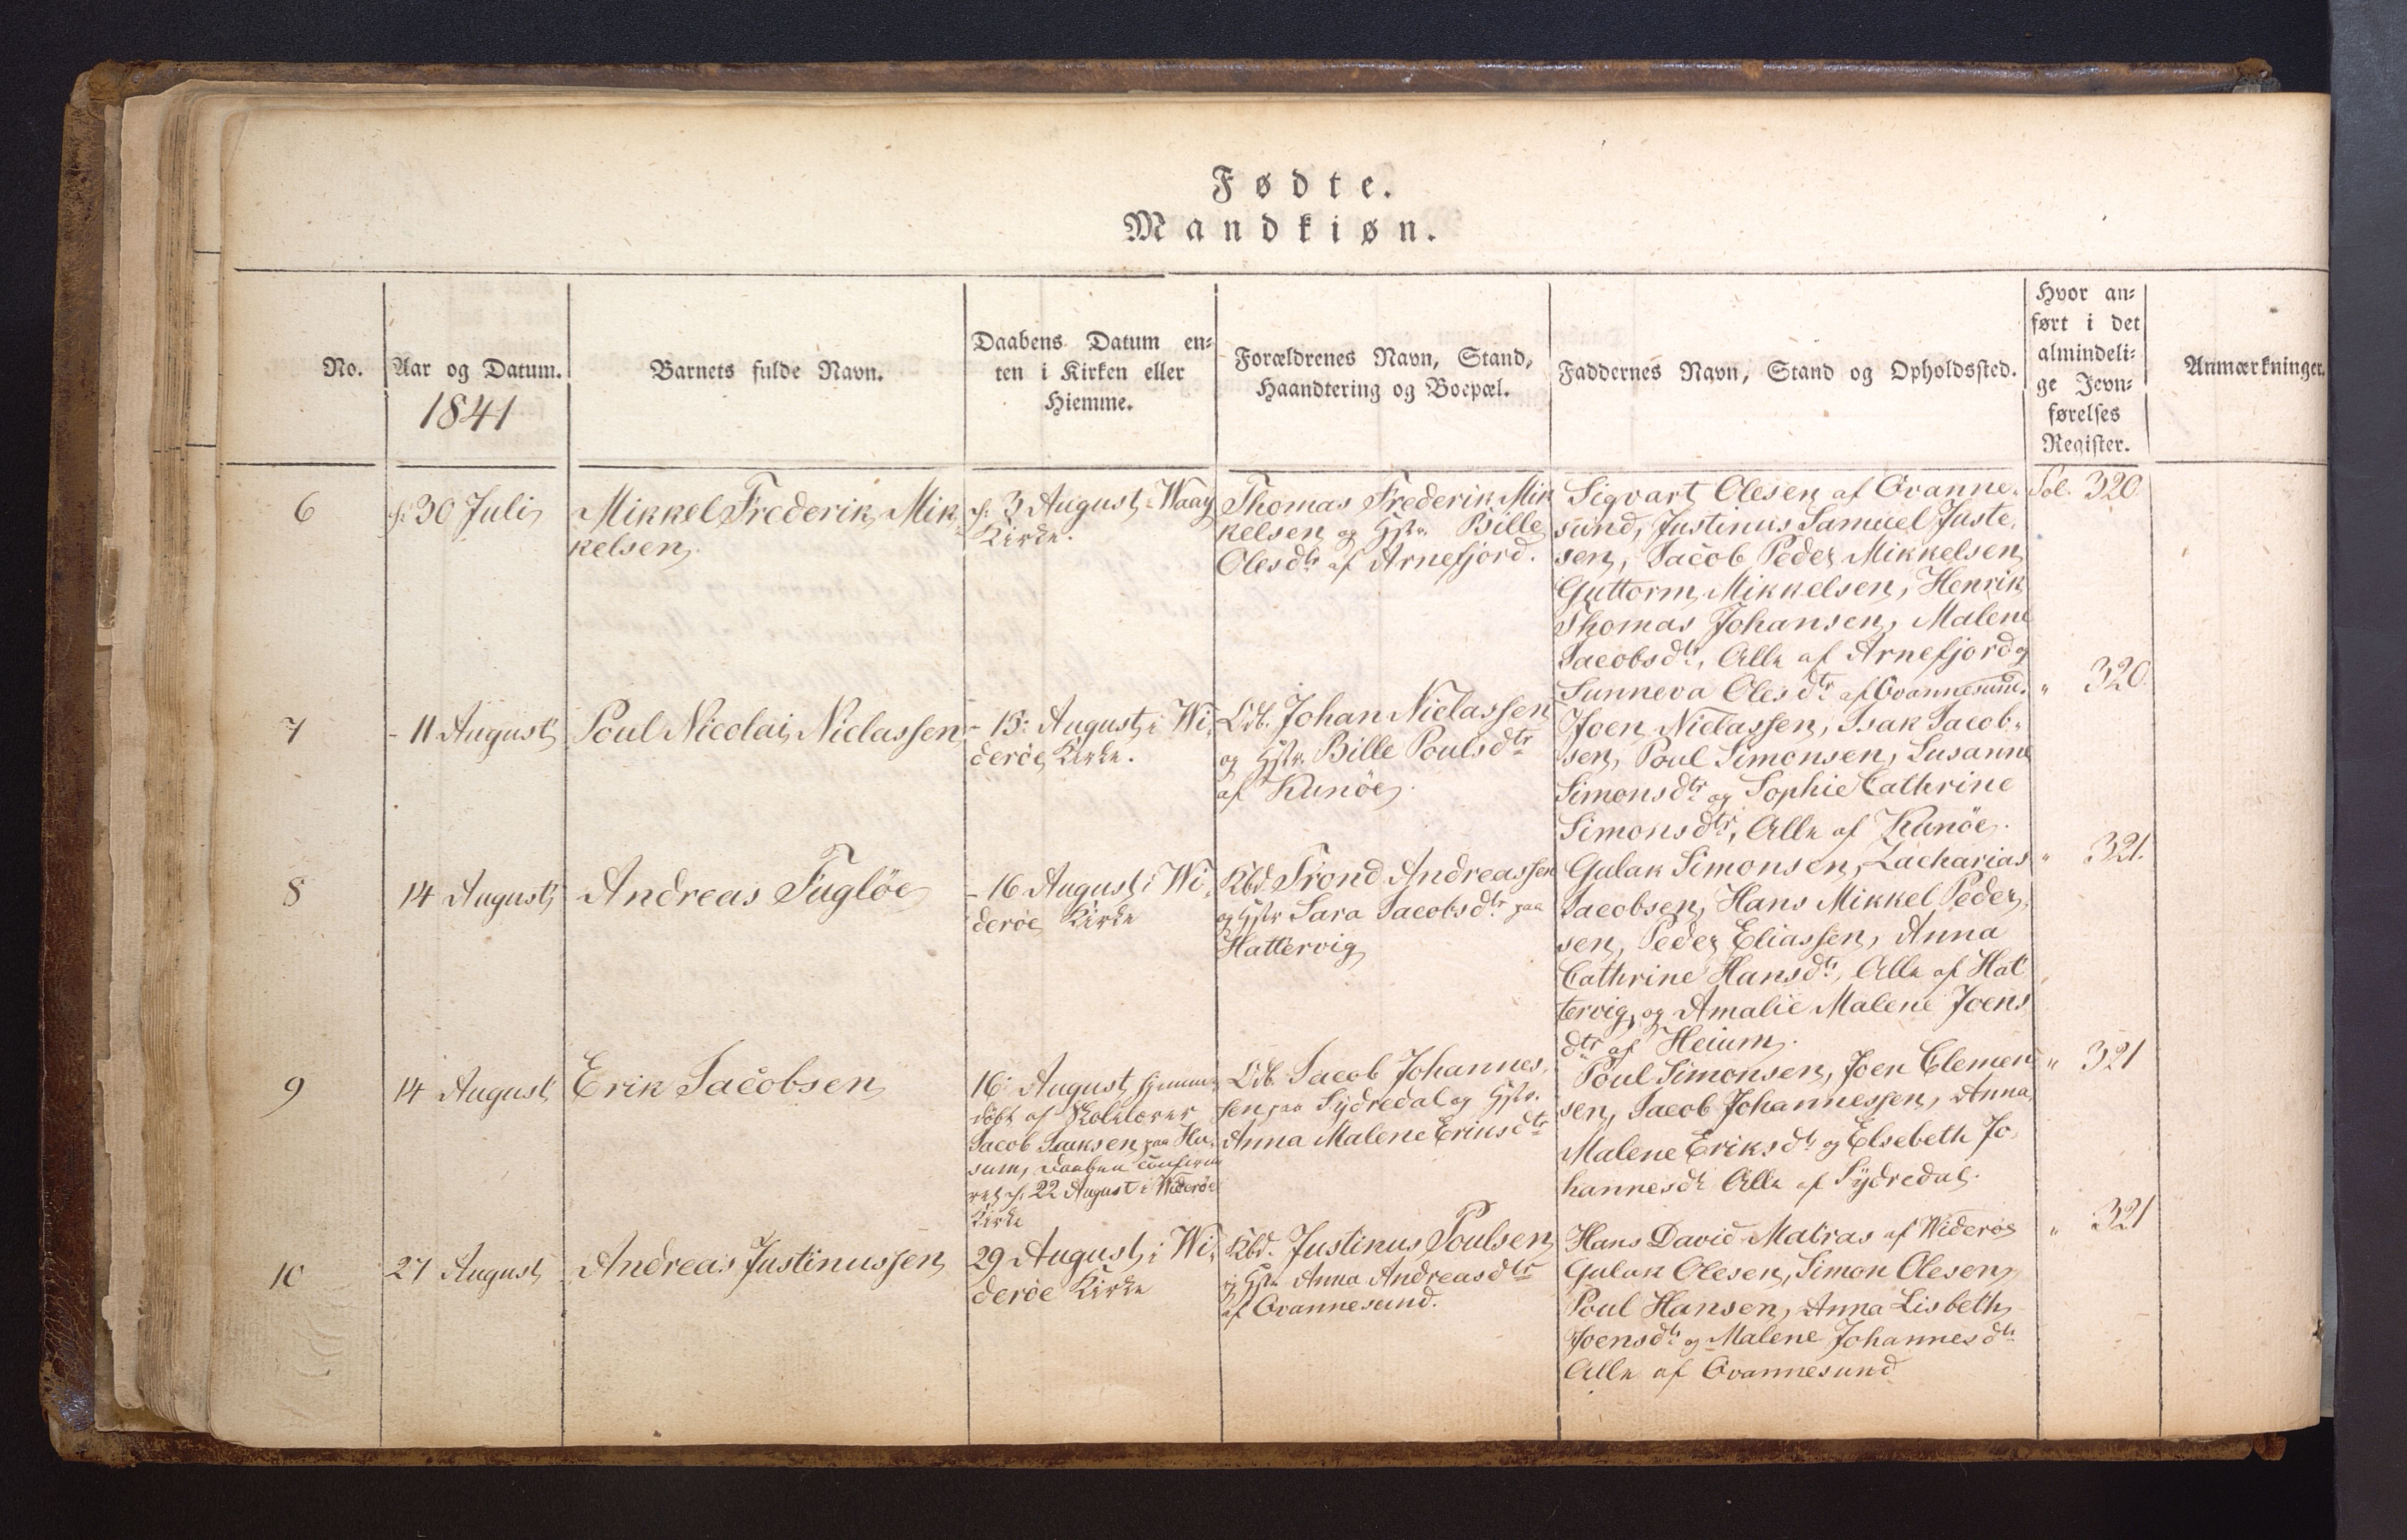 Fødte.
Mandkiøn.
No.
Aar og Datum.
1841
Barnets fulde Navn.
Daabens Datum en-
ten i Kirken eller
Hiemme.
Forældrenes Navn, Stand,
Haandtering og Boepæl.
Faddernes Navn, Stand og Opholdssted.
Hvor an-
ført i det
almindeli-
ge Jevn-
førelses
Register.
Anmærkninger.
6
30 Juli
Mikkel Frederik Mik-
kelsen
3 August i Waag
Kirke.
Thomas Frederik Mik
kelsen og Hstr. Bille
Olesdtr af Arnefjord.
Sigvart Olesen af Qvanne-
sund, Justinus Samuel Juste-
sen, Jacob Peder Mikkelsen
Guttorm Mikkelsen, Henrik
Thomas Johansen, Malene
Jacobsdtr, Alle af Arnefjord og
Sunneva Olesdtr af Qvannesund.
Fol. 320
7
- 11 August
Poul Nicolai Niclassen
- 15: August i Wi-
derøe Kirke.
Johan Niclassen
og Hstr. Bille Poulsdtr
af Kunøe
Joen Niclassen, Isak Jacob-
sen, Poul Simonsen, Susanne
Simonsdtr og Sophie Cathrine
Simonsdtr, Alle af Kunøe.
" 320
8
14 August
Andreas Fugløe
- 16 August i Wi-
derøe Kirke
Kbd. Trond Andreassen
og Hstr Sara Jacobsdtr paa
Hattervig
Gulak Simonsen, Zacharias
Jacobsen, Hans Mikkel Peder-
sen, Peder Eliassen, Anna
Cathrine Hansdtr, Alle af Hat
tervig, og Amalie Malene Joens
dtr af Heium.
" 321.
9
14 August
Erik Jacobsen
16: August hjemme-
døbt af Skolelærer
Jacob Isaksen paa Hu-
sum, Daaben confirme
ret 22 August i Widerøe
Kirke
Jacob Johannes-
sen paa Sydredal og Hstr.
Anna Malene Eriksdtr
Poul Simonsen, Joen Clemen
sen, Jacob Johannessen, Anna
Malene Eriksdtr og Elsebeth Jo-
hannesdtr Alle af Sydredal.
" 321
10
27 August
Andreas Justinussen
29 August i Wi-
derøe Kirke
Kbd. Justinus Poulsen
og Hstr. Anna Andreasdtr
af Qvannesund.
Hans David Matras af Widerøe
Gulak Olesen, Simon Olesen,
Poul Hansen, Anna Lisbeth
Joensdtr og Malene Johannesdtr
Alle af Qvannesund
" 321